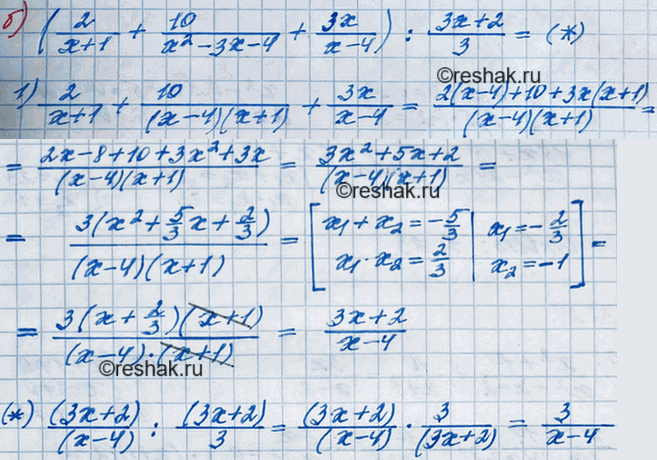 б) (2/(x+1) + 10/(x²-3x-4) + 3x/(x-4)) : (3x+2)/3 = (*)
©reshak.ru
1) 2/(x+1) + 10/((x-4)(x+1)) + 3x/(x-4) = (2(x-4)+10+3x(x+1))/((x-4)(x+1)) =
= (2x-8+10+3x²+3x)/((x-4)(x+1)) = (3x²+5x+2)/((x-4)(x+1)) =
©reshak.ru
= 3(x²+5/3x+2/3)/((x-4)(x+1)) = [x₁+x₂=-5/3 | x₁=-2/3
x₁·x₂=2/3 | x₂=-1] =
= 3(x+2/3)(x+1)/((x-4)·(x+1)) = (3x+2)/(x-4)
©reshak.ru
(*) (3x+2)/(x-4) : (3x+2)/3 = (3x+2)/(x-4) · 3/(3x+2) = 3/(x-4)